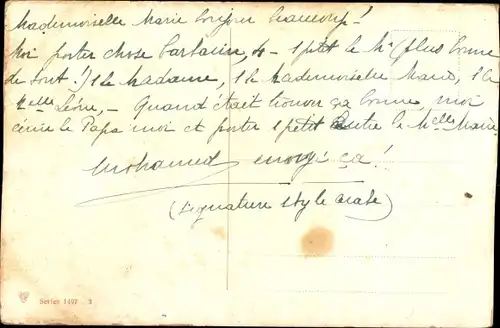 Mademoiselle Marie bonjour beaucoup!
Moi porter chose 1 petit le Mr (plus bonne
de tout!) 1 le Madame, 1 le Mademoiselle 1 le
Melle - Quand était trouver ça bonne, moi
le Papa moi et porter 1 petit autre le Melle Marie
Mohamed envoyé ça!
(signature style arabe)
Series 1497 3